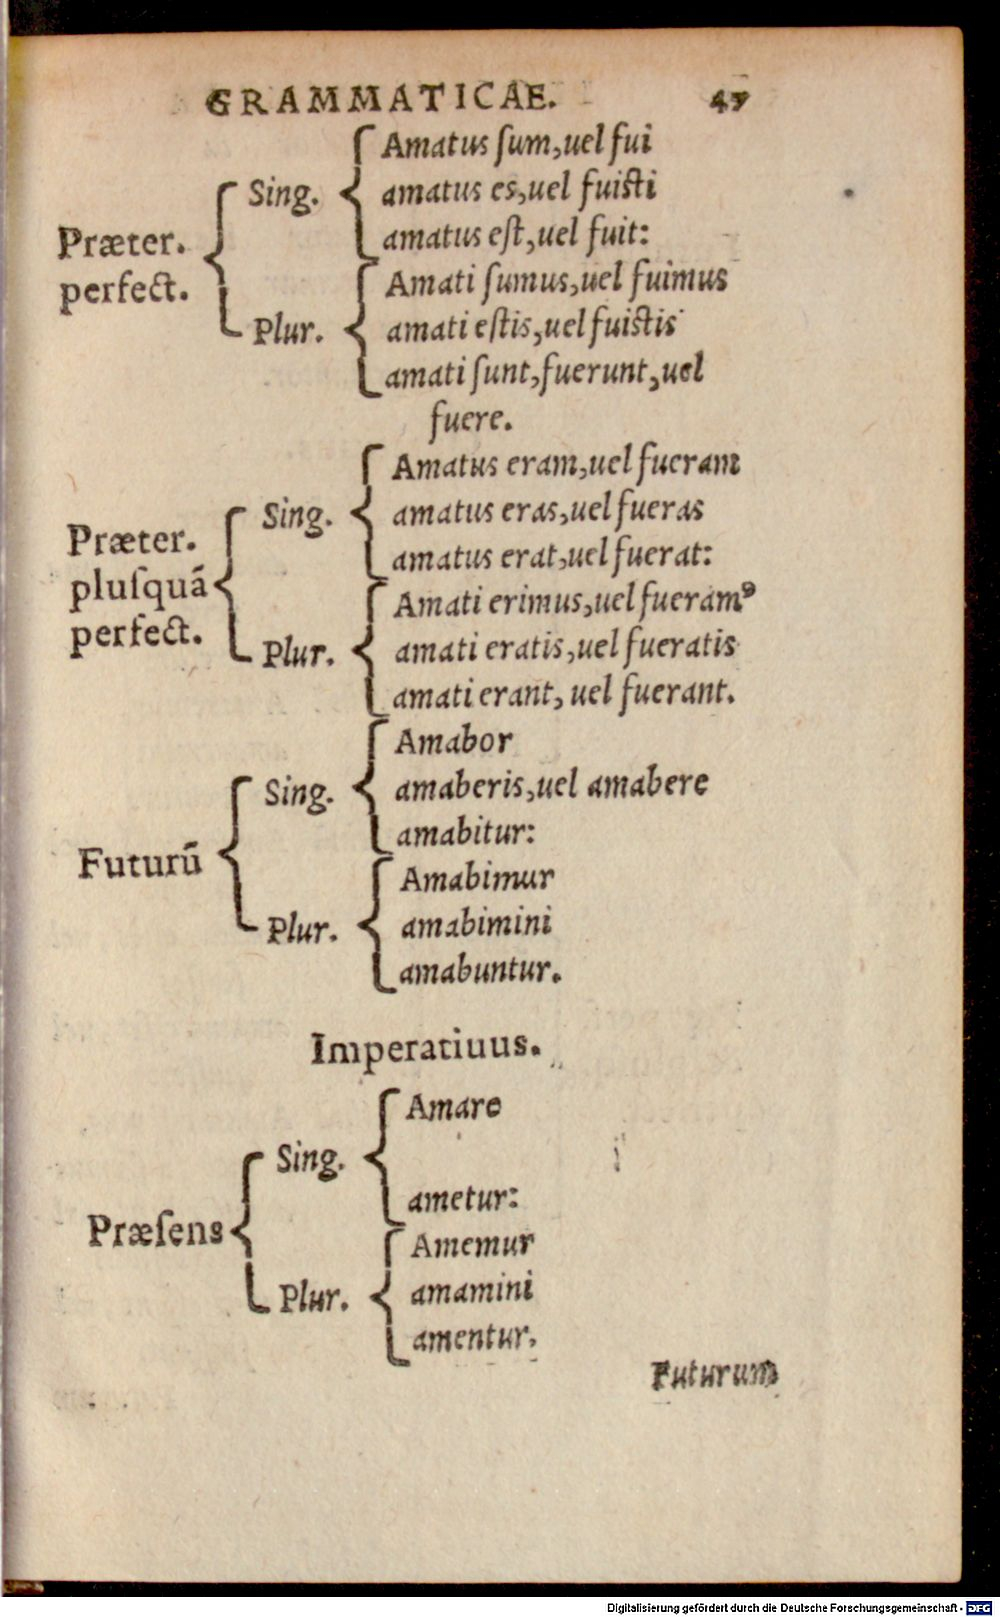 GRAMMATICAE. 47
Amatus ſum,uel fui
Sing. amatus es,uel fuisti
amatus eſt,uel fuit:
Præter.
perfect.
Amati ſumus,uel fuimus
Plur. amati eſtis,uel fuistis
amati ſunt,fuerunt,uel
fuere.
Amatus eram,uel fueram
Sing. amatus eras,uel fueras
amatus erat,uel fuerat:
Præter.
pluſquā
perfect.
Amati erimus,uel fueramꝰ
Plur. amati eratis,uel fueratis
amati erant, uel fuerant.
Amabor
Sing. amaberis,uel amabere
amabitur:
Futurū
Amabimur
Plur. amabimini
amabuntur.
Imperatiuus.
Amare
Sing.
ametur:
Præſens
Amemur
Plur. amamini
amentur.
Futurum
Digitalisierung gefördert durch die Deutsche Forschungsgemeinschaft - DFG